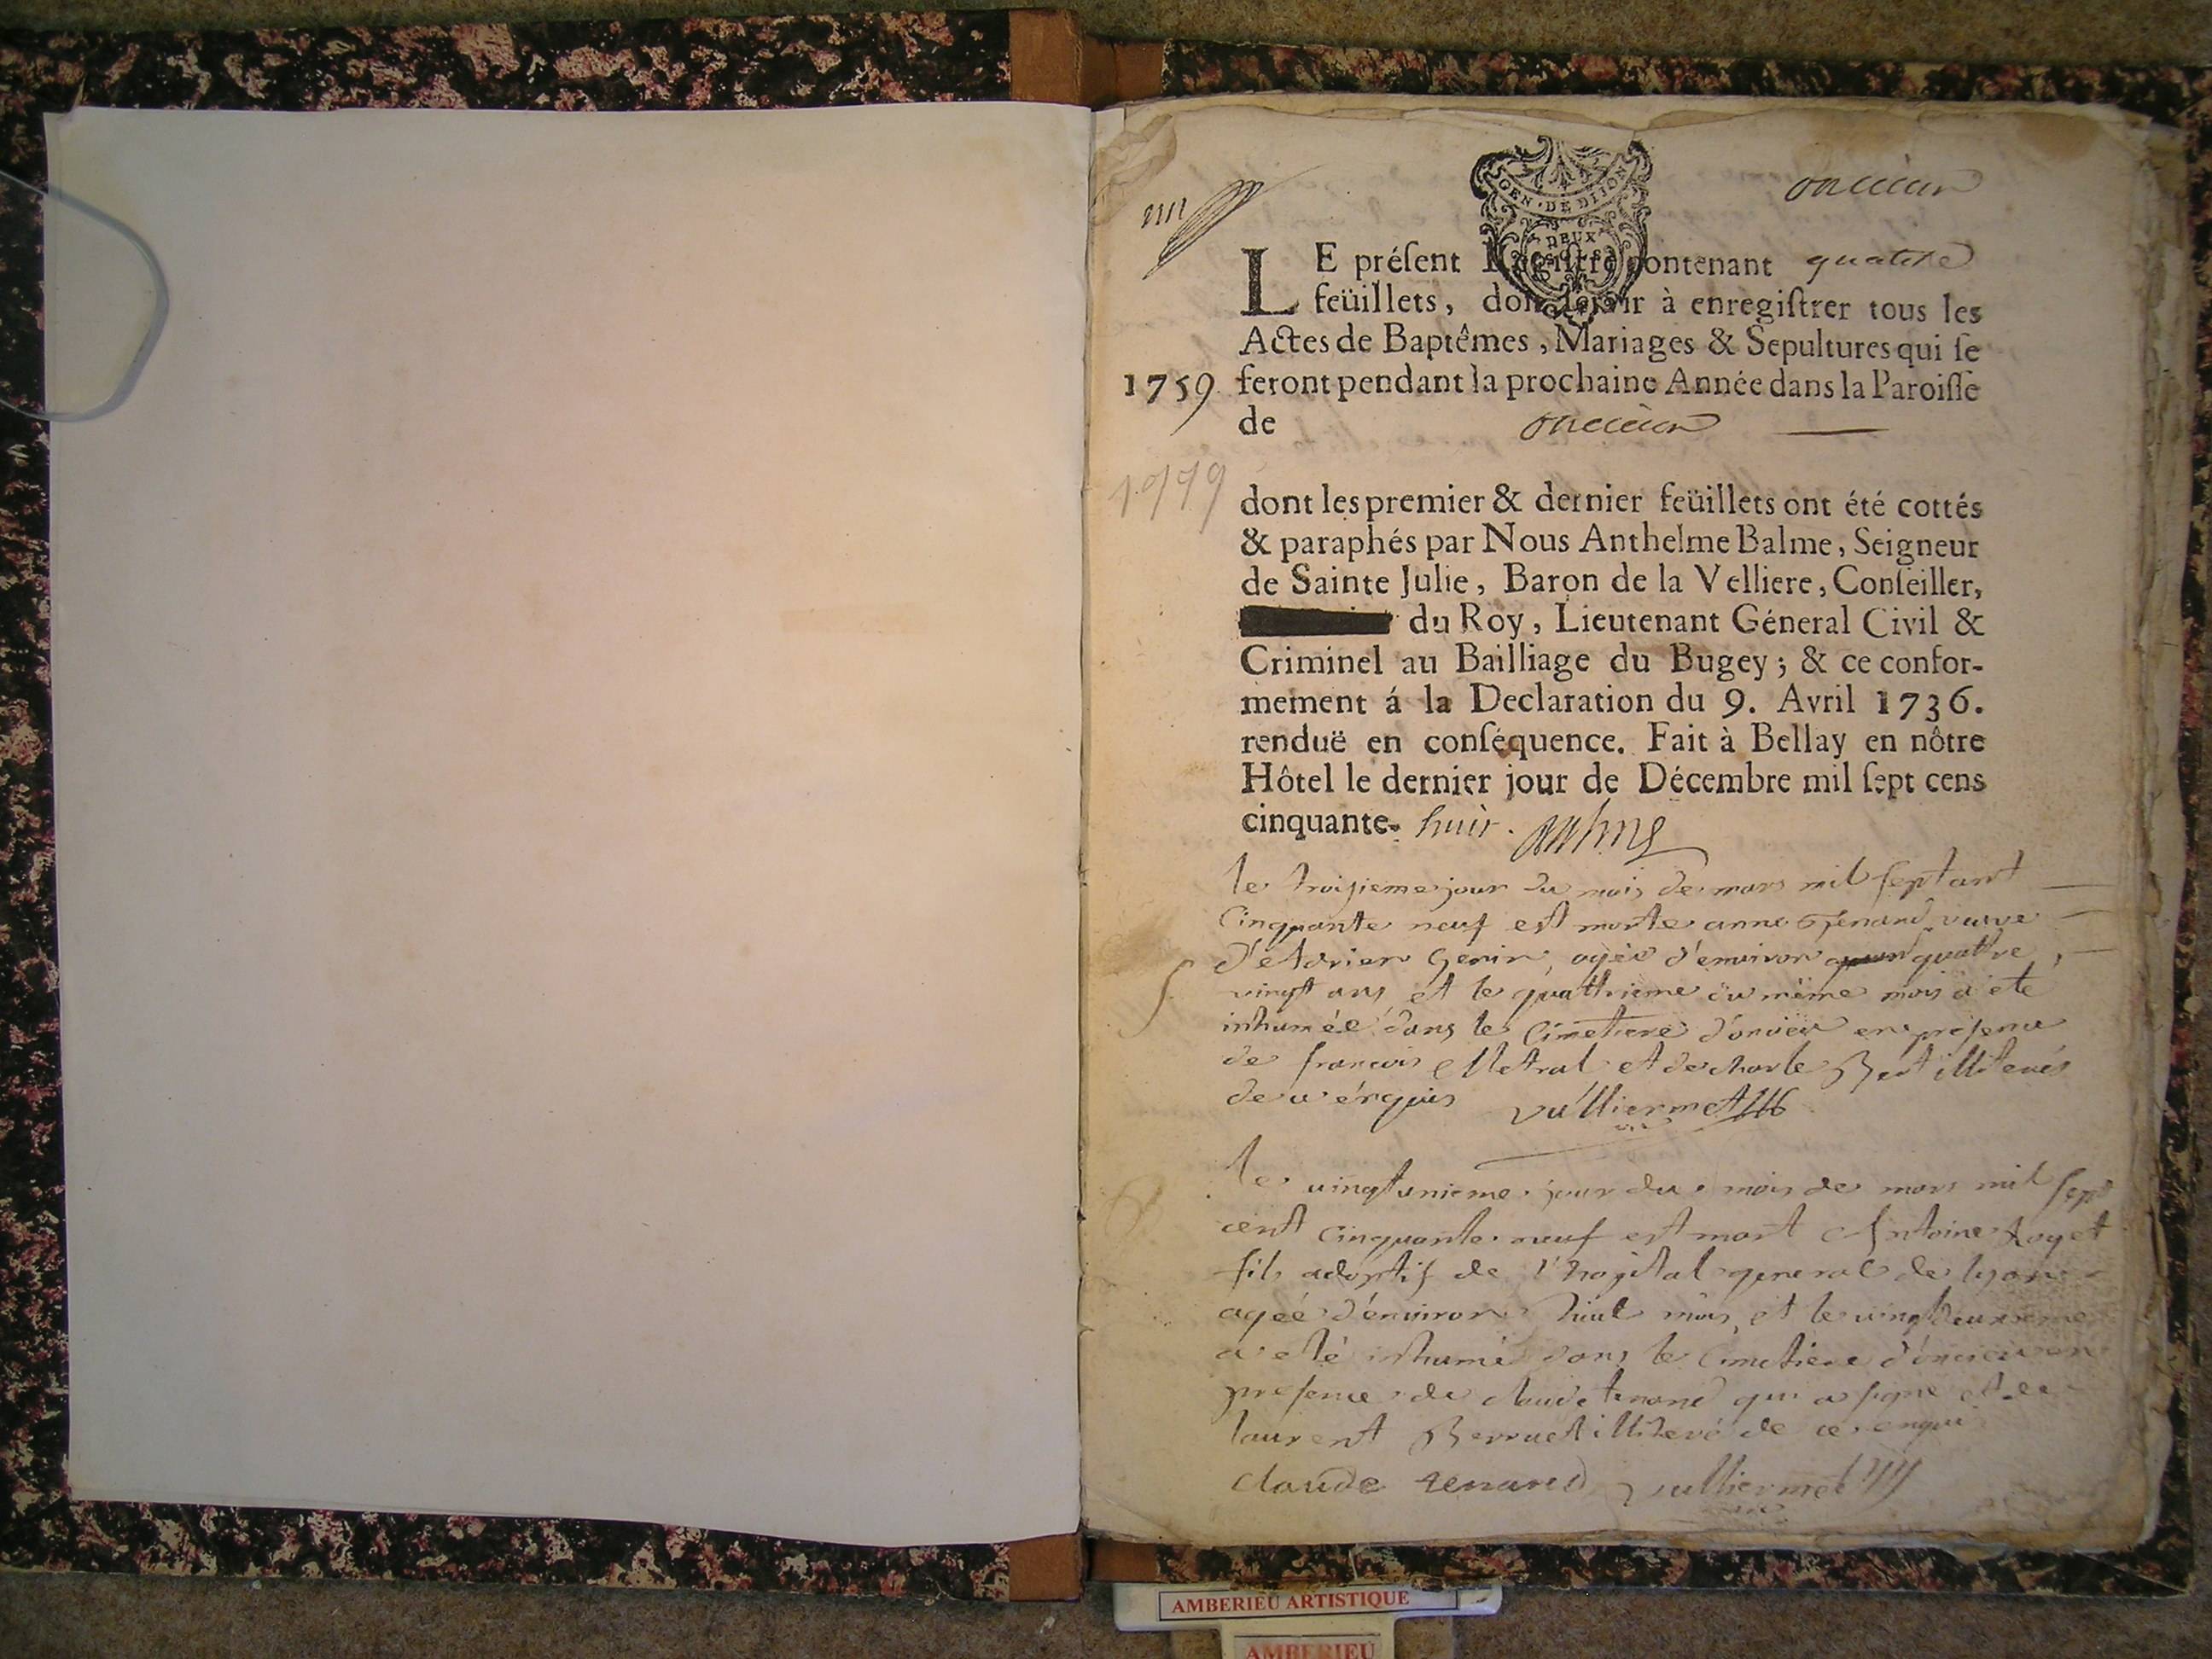 oncieu
GEN · DE DIJON
DEUX
LE préſent Regiſtre contenant quatre
feüillets, doit ſervir à enregiſtrer tous les
Actes de Baptêmes, Mariages & Sepultures qui ſe
1759 feront pendant la prochaine Année dans la Paroiſſe
de oncieu
dont les premier & dernier feüillets ont été cottés
& paraphés par Nous Anthelme Balme, Seigneur
de Sainte Julie, Baron de la Velliere, Conſeiller,
du Roy, Lieutenant Géneral Civil &
Criminel au Bailliage du Bugey; & ce confor-
mement á la Declaration du 9. Avril 1736.
renduë en conſéquence. Fait à Bellay en nôtre
Hôtel le dernier jour de Décembre mil ſept cens
cinquante- huit. Balme
le troisieme jour du mois de mars mil sept cent
cinquante neuf est morte anne Genand veuve
d'Adrien Genin, agée d'environ quattre
vingt ans et le quattrieme du même mois a été
inhumée dans le cimetiere d'oncieu en presence
de francois Metral et de charle Bert illiterés
de ce enquis vulliermet
le vingtunieme jour du mois de mars mil sept
cent cinquante neuf est mort Antoine Royet
fils adoptif de l'hopital general de lyon
agée d'environ huit mois, et le vingtdeuxieme
a été inhumé dans le cimetiere d'oncieu en
presence de claude tenand qui a signe et de
laurent Berruet illiteré de ce enqui
claude tenand vulliermet
AMBERIEU ARTISTIQUE
AMBERIEU